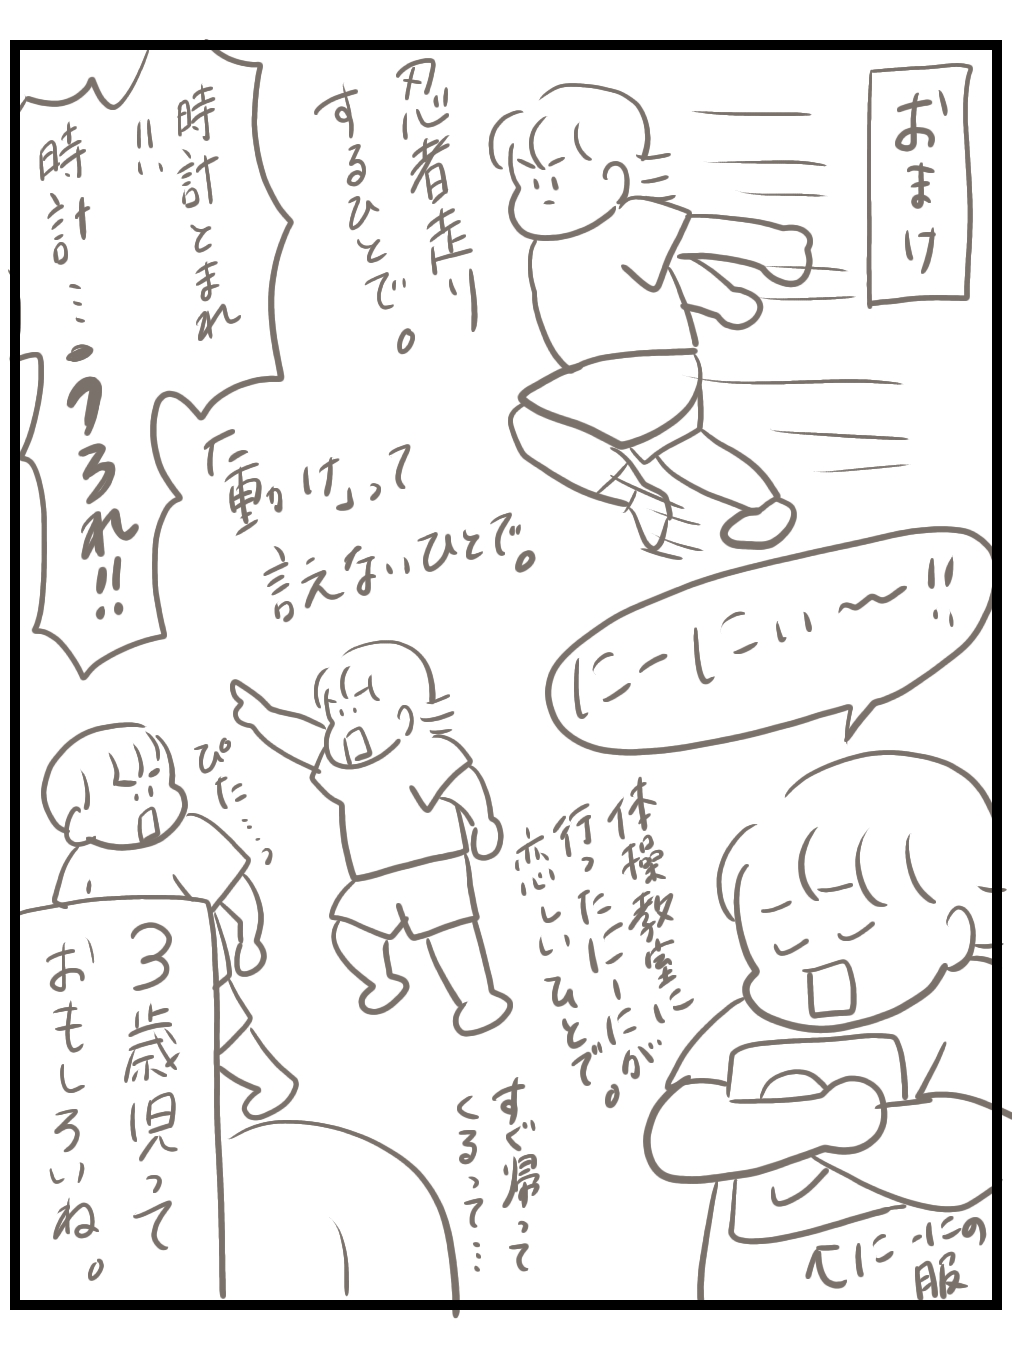 おまけ
忍者走り
するひとで。
時計とまれ
!!
時計…
うろれ!!
「動け」って
言えないひとで。
にーにぃ〜!!
体操教室に
行ったにーにが
恋しいひとで。
すぐ帰って
くるって…
↑にーにの
服
ぴた……っ
3歳児って
おもしろいね。